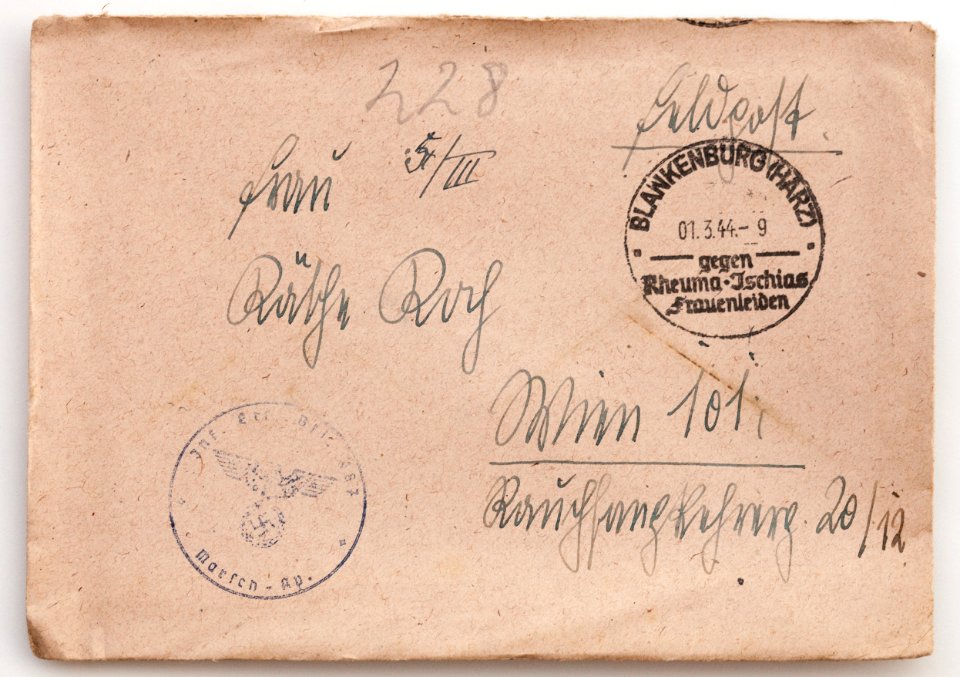 228
Feldpost.
Frau
5./III
BLANKENBURG (HARZ)
01.3.44.-9
gegen
Rheuma·Ischias
Frauenleiden
Käthe Koch
Wien 101.
Rauchfangkehrerg. 20/12
Inf. Ers. Btl. 487
Marsch-Kp.